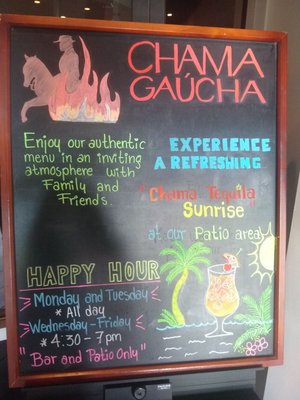 CHAMA
GAÚCHA
Enjoy our authentic
menu in an inviting
atmosphere with
Family and
Friends.
EXPERIENCE
A REFRESHING
"Chama Tequila
Sunrise
at our Patio area
HAPPY HOUR
Monday and Tuesday
* All day
Wednesday - Friday
* 4:30 - 7pm
"Bar and Patio Only"